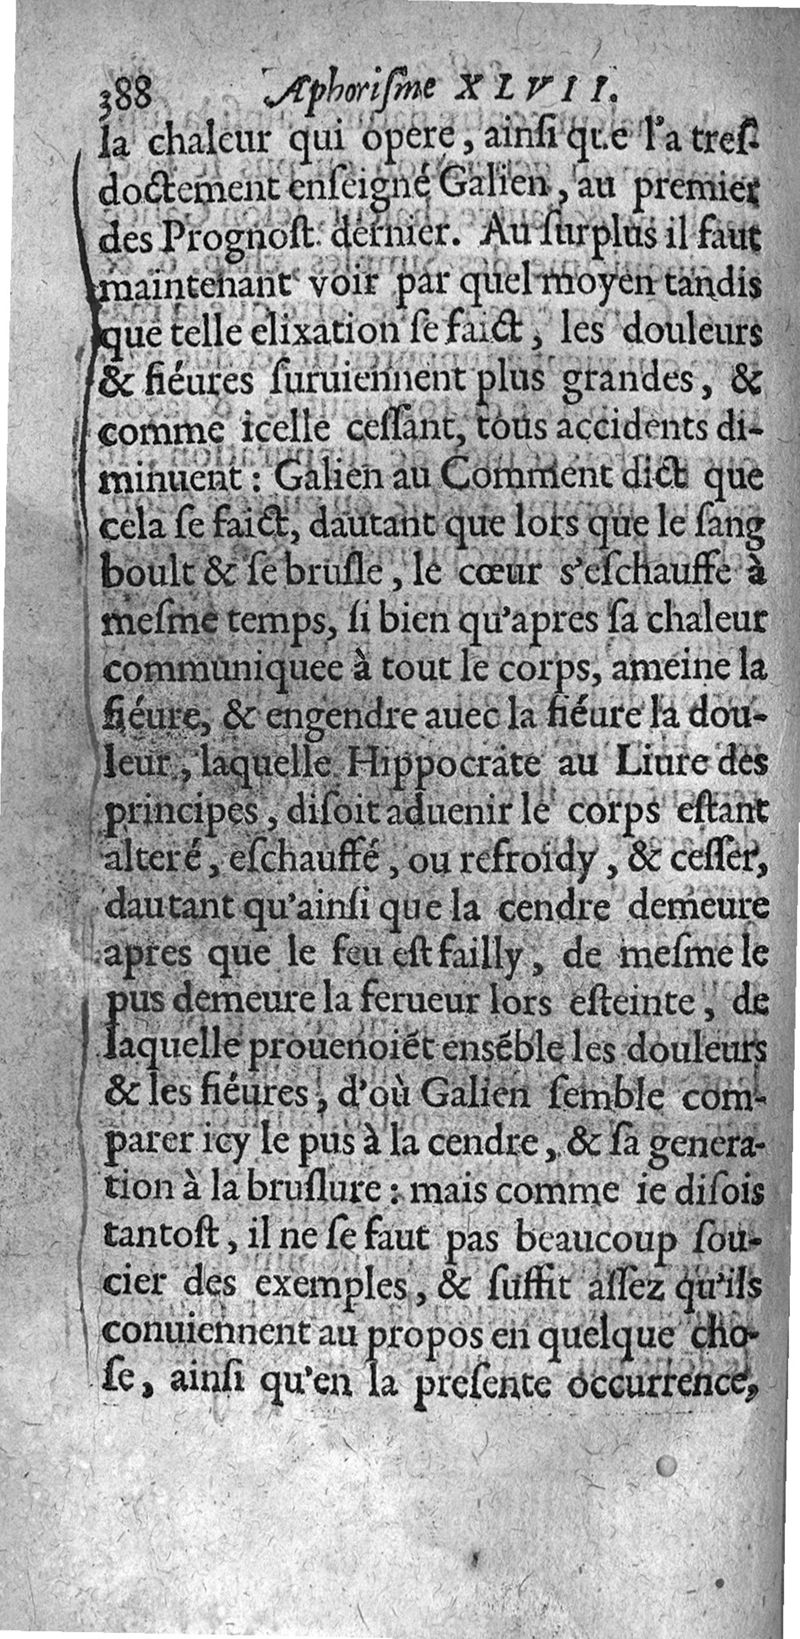 388 Aphoriſme XLVII.
la chaleur qui opere, ainſi que l'a treſ-
doctement enſeigné Galien, au premier
des Prognoſt. dernier. Au ſurplus il faut
maintenant voir par quel moyen tandis
que telle elixation ſe faict, les douleurs
& fiéures ſuruiennent plus grandes, &
comme icelle ceſſant, tous accidents di-
minuent : Galien au Comment dict que
cela ſe faict, dautant que lors que le ſang
boult & ſe bruſle, le cœur s'eſchauffe à
meſme temps, ſi bien qu'apres ſa chaleur
communiquee à tout le corps, ameine la
fiéure, & engendre auec la fiéure la dou-
leur, laquelle Hippocrate au Liure des
principes, diſoit aduenir le corps eſtant
alteré, eſchauffé, ou refroidy, & ceſſer,
dautant qu'ainſi que la cendre demeure
apres que le feu eſt failly, de meſme le
pus demeure la ferueur lors eſteinte, de
laquelle prouenoiẽt enſẽble les douleurs
& les fiéures, d'où Galien ſemble com-
parer icy le pus à la cendre, & ſa genera-
tion à la bruſlure : mais comme ie diſois
tantoſt, il ne ſe faut pas beaucoup ſou-
cier des exemples, & ſuffit aſſez qu'ils
conuiennent au propos en quelque cho-
ſe, ainſi qu'en la preſente occurrence,